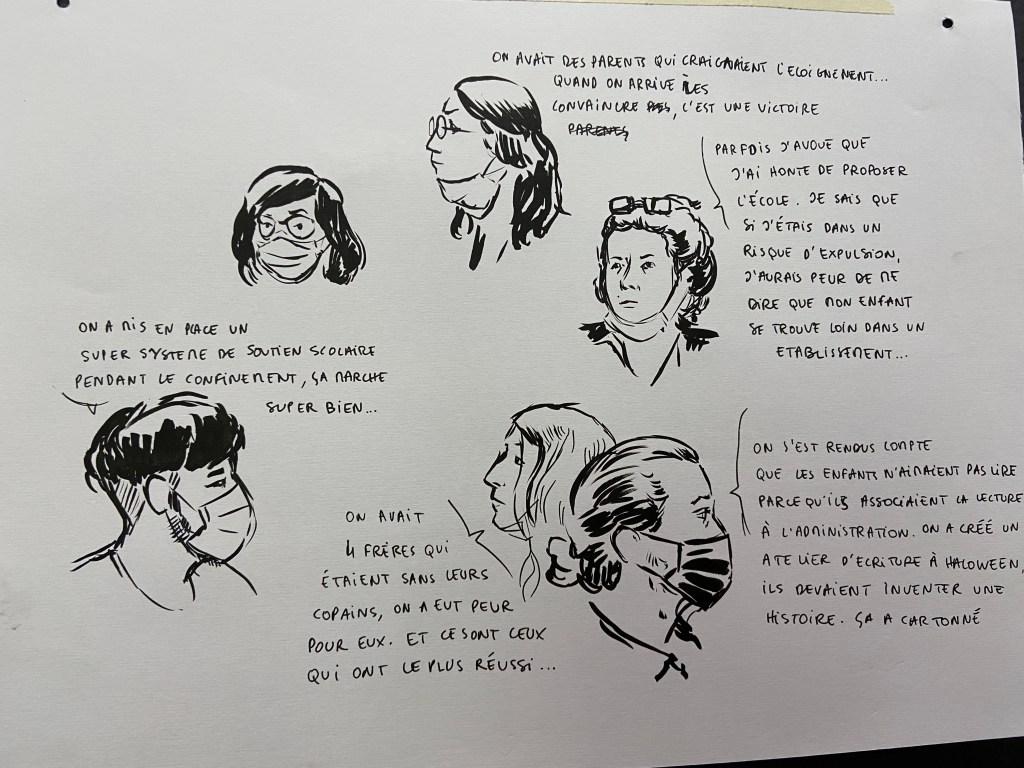 ON AVAIT DES PARENTS QUI CRAIGNAIENT L'ELOIGNEMENT...
QUAND ON ARRIVE À LES
CONVAINCRE, C'EST UNE VICTOIRE
PARENTS
PARFOIS J'AVOUE QUE
J'AI HONTE DE PROPOSER
L'ÉCOLE. JE SAIS QUE
SI J'ÉTAIS DANS UN
RISQUE D'EXPULSION,
J'AURAIS PEUR DE ME
DIRE QUE MON ENFANT
SE TROUVE LOIN DANS UN
ETABLISSEMENT...
ON A MIS EN PLACE UN
SUPER SYSTEME DE SOUTIEN SCOLAIRE
PENDANT LE CONFINEMENT, ÇA MARCHE
SUPER BIEN...
ON AVAIT
4 FRÈRES QUI
ÉTAIENT SANS LEURS
COPAINS, ON A EUT PEUR
POUR EUX. ET CE SONT CEUX
QUI ONT LE PLUS RÉUSSI...
ON S'EST RENDUS COMPTE
QUE LES ENFANTS N'AIMAIENT PAS LIRE
PARCE QU'ILS ASSOCIAIENT LA LECTURE
À L'ADMINISTRATION. ON A CRÉÉ UN
ATELIER D'ECRITURE À HALOWEEN,
ILS DEVAIENT INVENTER UNE
HISTOIRE. ÇA A CARTONNÉ